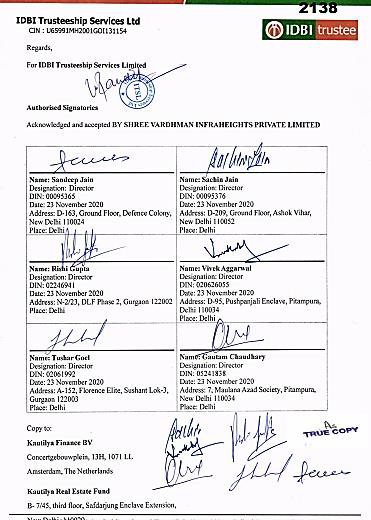 2138
IDBI Trusteeship Services Ltd
CIN : U65991MH2001GOI131154
IDBI trustee
Regards,
For IDBI Trusteeship Services Limited
ITSL
Authorised Signatories
Acknowledged and accepted BY SHREE VARDHMAN INFRAHEIGHTS PRIVATE LIMITED
Name: Sandeep Jain
Designation: Director
DIN: 00095365
Date: 23 November 2020
Address: D-163, Ground Floor, Defence Colony,
New Delhi 110024
Place: Delhi
Sachin Jain
Name: Sachin Jain
Designation: Director
DIN: 00095376
Date: 23 November 2020
Address: D-209, Ground Floor, Ashok Vihar,
New Delhi 110052
Place: Delhi
Name: Rishi Gupta
Designation: Director
DIN: 02246941
Date: 23 November 2020
Address: N-2/23, DLF Phase 2, Gurgaon 122002
Place: Delhi
Name: Vivek Aggarwal
Designation: Director
DIN: 020626055
Date: 23 November 2020
Address: D-95, Pushpanjali Enclave, Pitampura,
Delhi 110034
Place: Delhi
Name: Tushar Goel
Designation: Director
DIN: 02061992
Date: 23 November 2020
Address: A-152, Florence Elite, Sushant Lok-3,
Gurgaon 122003
Place: Delhi
Name: Gautam Chaudhary
Designation: Director
DIN: 05241838
Date: 23 November 2020
Address: 7, Maulana Azad Society, Pitampura,
New Delhi 110034
Place: Delhi
Copy to:
Kautilya Finance BV
Concertgebouwplein, 13H, 1071 LL
Amsterdam, The Netherlands
TRUE COPY
Kautilya Real Estate Fund
B- 7/45, third floor, Safdarjung Enclave Extension,